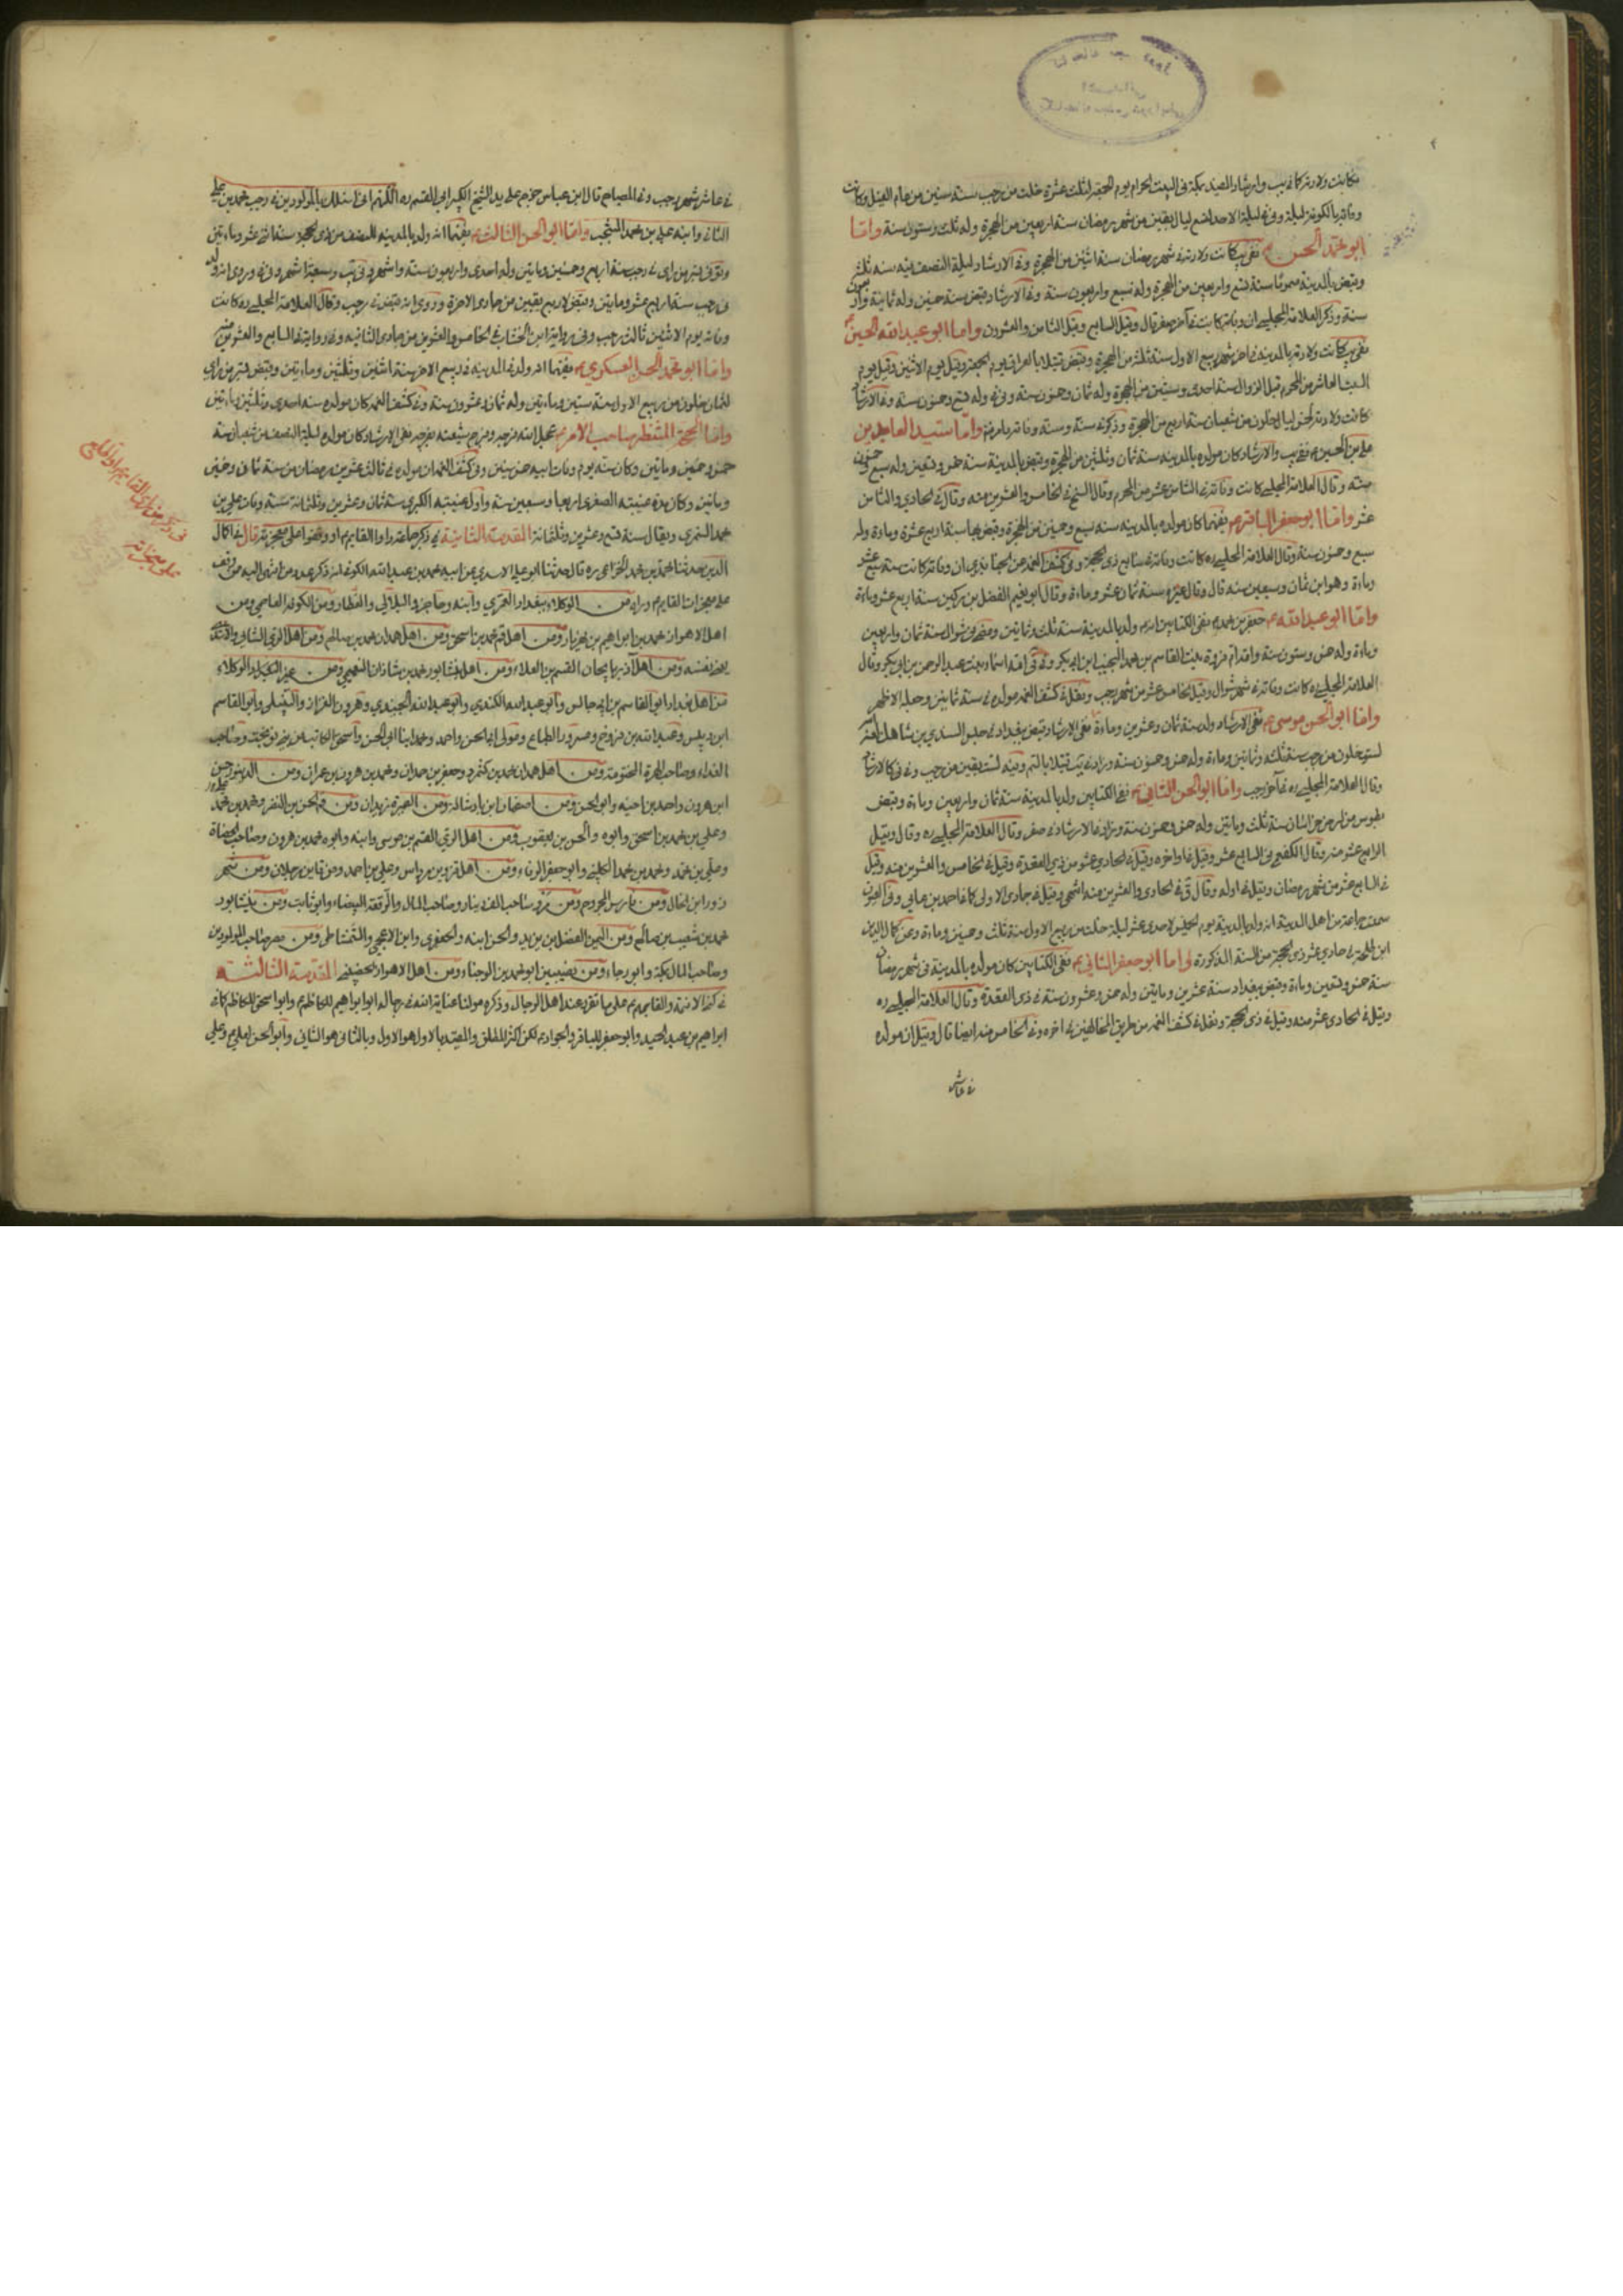 فكانت ولادته كما في يب وارشاد المفيد بمكة في البيت الحرام يوم الجمعة لثلث عشرة خلت من رجب سنة ستين من عام الفيل وكانت
وفاته بالكوفة ليلة وفي ليلة الاحد لتسع ليال بقين من شهر رمضان سنة اربعين من الهجرة وله ثلث وستون سنة واما
ابو محمد الحسن ع ففي يب كانت ولادته في شهر رمضان سنة اثنين من الهجرة وفي الارشاد ليلة النصف منه سنة ثلث
وقبض بالمدينة مسموما سنة تسع واربعين من الهجرة وله سبع واربعون سنة وفي الارشاد قبض سنة خمسين وله ثمانية واربعون
سنة وذكر العلامة المجلسي ان وفاته كانت في آخر صفر قال وقيل السابع وقيل الثامن والعشرون واما ابو عبد الله الحسين ع
ففي يب كانت ولادته بالمدينة في اخر شهر ربيع الاول سنة ثلث من الهجرة وقبض قتيلا بالعراق يوم الجمعة وقيل يوم الاثنين وقيل يوم
السبت العاشر من المحرم قبل الزوال سنة احدى وستين من الهجرة وله ثمان وخمسون سنة وفي وله سبع وخمسون سنة وفي الارشاد
كانت ولادته لخمس ليال خلون من شعبان سنة اربع من الهجرة واما سيد العابدين
علي بن الحسين ع ففي يب والارشاد كان مولده بالمدينة سنة ثمان وثلثين من الهجرة وقبض بالمدينة سنة خمس وتسعين وله سبع وخمسون
سنة وقال العلامة المجلسي كانت وفاته في الثامن عشر من المحرم وقال الشيخ في الخامس والعشرين منه وقال في الحادي والثامن
عشر واما ابو جعفر الباقر ع ففيهما كان مولده بالمدينة سنة سبع وخمسين من الهجرة وقبض بها سنة اربع عشرة ومائة وله
سبع وخمسون سنة وقال العلامة المجلسي ره كانت وفاته في سابع ذي الحجة وفي كشف الغمة عن الجنابذي ان وفاته كانت سنة سبع عشر
ومائة وهو ابن ثمان وسبعين سنة قال وقال غيره سنة ثمان عشر ومائة وقال ابو نعيم الفضل بن دكين سنة اربع عشر ومائة
واما ابو عبد الله ع جعفر بن محمد ففي الكتابين انه ع ولد بالمدينة سنة ثلث وثمانين ومضى في شوال سنة ثمان واربعين
ومائة وله خمس وستون سنة وامه ام فروة بنت القاسم بن محمد النجيب ابن ابي بكر وفي امه اسماء بنت عبد الرحمن بن ابي بكر وقال
العلامة المجلسي ره كانت وفاته في شهر شوال وقيل خامس عشر من شهر رجب ونقل في كشف الغمة مولده في سنة ثمانين وجعله الاظهر
واما ابو الحسن موسى ع ففي الارشاد ولد سنة ثمان وعشرين ومائة ففي الارشاد قبض ببغداد في حبس السندي بن شاهك
لست خلون من رجب سنة ثلث وثمانين ومائة وله خمس وخمسون سنة
وقال العلامة المجلسي ره في آخر رجب واما ابو الحسن الثاني ع ففي الكتابين ولد بالمدينة سنة ثمان واربعين ومائة وقبض
بطوس من ارض خراسان سنة ثلث ومايتين وله خمس وخمسون سنة وزاد في الارشاد في صفر وقال العلامة المجلسي ره وقال وقيل
الرابع عشر منه وقال الكفعمي في السابع عشر وقيل في اواخره وقيل في الحادي عشر من ذي القعدة وقيل في الخامس والعشرين منه وقيل
في السابع عشر من شهر رمضان وقيل في اوله
سمعت جماعة من اهل المدينة انه ولد بالمدينة يوم الخميس لاحدى عشر ليلة خلت من ربيع الاول سنة ثلث وخمسين ومائة وعن كمال الدين
ابن طلحة في حادي عشر ذي الحجة من السنة المذكورة واما ابو جعفر الثاني ع ففي الكتابين كان مولده بالمدينة في شهر رمضان
سنة خمس وتسعين ومائة وقبض ببغداد سنة عشرين ومايتين وله خمس وعشرون سنة في ذي القعدة وقال العلامة المجلسي ره
وقيل في الحادي عشر منه وقيل في ذي الحجة ونقل في كشف الغمة من طريق المخالفين في اخره وفي الخامس منه ايضا قال وقيل ان مولده
في عاشر
في عاشر شهر رجب وفي المصباح قال ابن عياش خرج على يد الشيخ الكبير ابي القسم ره اللهم اني اسئلك بالمولودين في رجب محمد بن علي
الثاني وابنه علي بن محمد المنتجب واما ابو الحسن الثالث ع ففيهما انه ولد بالمدينة للنصف من ذي الحجة سنة اثني عشر ومايتين
وتوفي بسر من راى في رجب سنة اربع وخمسين ومايتين وله احدى واربعون سنة واشهر
في رجب سنة اربع عشر ومايتين وقبض لاربع بقين من جمادى الاخرة وروي انه قبض في رجب وقال العلامة المجلسي ره كانت
وفاته يوم الاثنين ثالث رجب وفي رواية ابن الخشاب في الخامس والعشرين من جمادى الثانية وفي رواية في السابع والعشرين منه
واما ابو محمد الحسن العسكري ع ففيهما انه ولد في المدينة في ربيع الاخر سنة اثنين وثلثين ومايتين وقبض بسر من راى
لثمان خلون من ربيع الاول سنة ستين ومايتين وله ثمان وعشرون سنة وفي كشف الغمة كان مولده سنة احدى وثلثين ومايتين
واما الحجة المنتظر صاحب الامر ع عجل الله فرجه وفرج شيعته بفرجه ففي الارشاد كان مولده ليلة النصف من شعبان سنة
خمس وخمسين ومايتين وكان سنه يوم وفات ابيه خمس سنين وفي كشف الغمة ان مولده في ثالث عشرين رمضان من سنة ثمان وخمسين
ومايتين وكان مدة غيبته الصغرى اربعا وسبعين سنة واول غيبته الكبرى سنة ثمان وعشرين وثلثمائة سنة وفات علي بن
محمد السمري ويقال سنة تسع وعشرين وثلثمائة المقدمة الثانية في ذكر جماعة راوا القايم ع او وقفوا على معجزته قال في اكمال
الدين حدثنا محمد بن محمد الخزاعي ره قال حدثنا ابو علي الاسدي عن ابيه محمد بن عبد الله الكوفي انه ذكر عدد من انتهى اليه ممن وقف
على معجزات القايم ع وراه من الوكلاء ببغداد العمري وابنه وحاجز والبلالي والعطار ومن الكوفة العاصمي ومن
اهل الاهواز محمد بن ابراهيم بن مهزيار ومن اهل قم محمد بن اسحق ومن اهل همدان محمد بن صالح ومن اهل الري الشامي والاسدي
يعني نفسه ومن اهل آذربايجان القسم بن العلاء ومن اهل نيشابور محمد بن شاذان النعيمي ومن غير الوكلاء
من اهل بغداد ابو القاسم بن ابي حالس وابو عبد الله الكندي وابو عبد الله الجنيدي وهرون القزاز والنيلي وابو القاسم
ابن دبيس وعبد الله بن فروخ ومسرور الطباخ ومولى ابي الحسن واحمد ومحمد ابنا ابي الحسن واسحق الكاتب من بني نوبخت وصاحب
الفداء وصاحب الصرة المختومة ومن اهل همدان محمد بن كشمرد وجعفر بن حمدان ومحمد بن هرون بن عمران ومن الدينور حسن
ابن هرون واحمد بن اخيه وابو الحسن ومن اصفهان ابن بادشاله ومن الصيمرة زيدان ومن قم الحسن بن النضر ومحمد بن محمد
وعلي بن محمد بن اسحق وابوه والحسن بن يعقوب ومن اهل الري القسم بن موسى وابنه وابو محمد بن هرون وصاحب الحصاة
وعلي بن محمد ومحمد بن محمد الكليني وابو جعفر الرفاء ومن اهل قزوين مرداس وعلي بن احمد ومن قاين رجلان ومن شهر
زور ابن الخال ومن فارس المجروح ومن مرو صاحب الف دينار وصاحب المال والرقعة البيضاء وابو ثابت ومن نيشابور
محمد بن شعيب بن صالح ومن اليمن الفضل بن يزيد والحسن ابنه والجعفري وابن الاعجمي والشمشاطي ومن مصر صاحب المولودين
وصاحب المال بمكة وابو رجاء ومن نصيبين ابو محمد بن الوجناء ومن اهل الاهواز الحصيني المقدمة الثالثة
في كنى الائمة والقابهم ع على ما تقرر عند اهل الرجال وذكره مولينا عناية الله في رجاله ابو ابراهيم للكاظم ع وابو اسحق للكاظم كما في
ابراهيم بن عبد الحميد وابو جعفر للباقر والجواد ع لكن اكثر المطلق والمقيد بالاول هو الاول وبالثاني هو الثاني وابو الحسن لعلي ع وعلي
في ذكر من راى القايم ع او وقف
على معجزاته